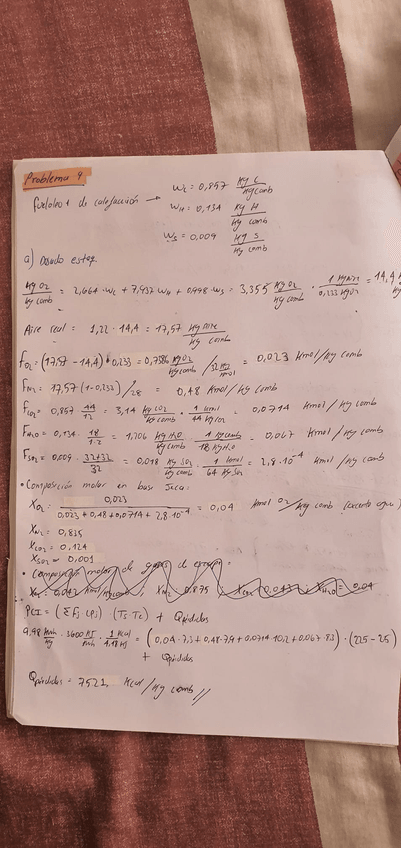 Problema 9
Fueloleo 1 de calefacción → Wc = 0,857 kg C / kg comb
WH = 0,134 kg H / kg comb
Ws = 0,009 kg S / kg comb
a) Dosado esteq.
kg O2 / kg comb = 2,664·Wc + 7,937 WH + 0,998·Ws = 3,355 kg O2 / kg comb · 1 kg aire / 0,233 kg O2 = 14,4
Aire real = 1,22·14,4 = 17,57 kg aire / kg comb
FO2 = (17,57 - 14,4)·0,233 = 0,7386 kg O2 / kg comb / 32 kg/kmol = 0,023 kmol/kg comb
FN2 = 17,57(1-0,233)/28 = 0,48 kmol/kg comb
FCO2 = 0,857·44/12 = 3,14 kg CO2 / kg comb · 1 kmol / 44 kg CO2 = 0,0714 kmol/kg comb
FH2O = 0,134·18/1·2 = 1,206 kg H2O / kg comb · 1 kg comb / 18 kg H2O = 0,067 kmol/kg comb
FSO2 = 0,009·32+32/32 = 0,018 kg SO2 / kg comb · 1 kmol / 64 kg SO2 = 2,8·10⁻⁴ kmol/kg comb
• Composición molar en base seca:
XO2 = 0,023 / 0,023 + 0,48 + 0,0714 + 2,8·10⁻⁴ = 0,04 kmol O2/kg comb (excepto agua)
XN2 = 0,835
XCO2 = 0,124
XSO2 = 0,001
• Composición molar de gases de escape:
PCI = (Σ Fj · cpj) · (Ts - Te) + Qpérdidas
9,98 kWh/kg · 3600 kJ/kWh · 1 kcal/4,18 kJ = (0,04·7,3 + 0,48·7,9 + 0,0714·10,2 + 0,067·8,3) · (225 - 25)
+ Qpérdidas
Qpérdidas = 7521 kcal/kg comb //